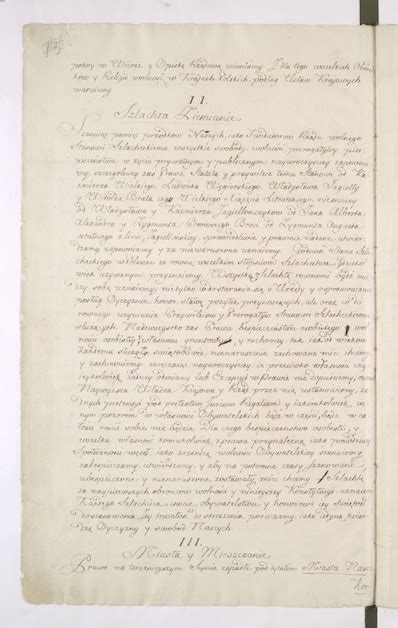 pokoy w Wierze y Opiekę Rządową winniśmy I dla tego wszelkich Obrząd-
ków y Religii wolność w Kraiach Polskich, podług Ustaw Kraiowych
waruiemy
II.
Szlachta Ziemianie
Szanuiąc pamięć przodków Naszych, iako Fundatorow Rządu wolnego
Stanowi Szlacheckiemu wszystkie swobody, wolności prerogatywy pier-
wszeństwa w życiu prywatnym y publicznym nayuroczyściey zapewnia-
my, szczegulniey zaś Prawa Statuta y przywileie temu Stanowi od Ka-
zimierza Wielkiego, Ludwika Węgierskiego, Władysława Jagiełły
y Witolda Brata iego Wielkiego Xiążęcia Litewskiego, niemniey
od Władysława y Kazimierza Jagiellończykow, od Jana Alberta
Alexandra y Zygmunta Pierwszego Braci od Zygmunta Augusta
ostatniego z linii Jagiellońskiey, sprawiedliwie y prawnie nadane, utwier-
dzamy zapewniamy y za niewzruszone uznaiemy. Godność Stanu Szla-
checkiego w Polszcze za rowną wszelkim stopniom Szlachectwa gdzie kol-
wiek używanym przyznaiemy. Wszystką Szlachtę rownemi być mię-
dzy sobą uznaiemy, nie tylko co do starania się o Urzędy y o sprawowanie
posług Oyczyznie, honor, sławę, pożytek przynoszących, ale oraz co do
rownego używania Przywileiow y Prerogatyw Stanowi Szlacheckiemu
służących Nadewszystko zaś Prawa bezpieczeństwa osobistego, wol-
ności osobistey y własności gruntowey y ruchomey, tak iak od wieków
każdemu służyły, świętobliwie, nienaruszenie zachowane mieć chcemy,
y zachowuiemy zaręczaiąc nayuroczyściey, iż przeciwko własności czy-
ieykolwiek żadney odmiany lub Excepcyi w Prawie nie dopuściemy, owszem
Naywyższa Władza Kraiowa y Rząd przez nią ustanowiony, ża-
dnych pretensyi pod pretextem Jurium Regalium y iakimkolwiek in-
nym pozorem do własności Obywatelskich bądź w części, bądź w ca-
łości rościć sobie nie będzie. Dla czego bezpieczeństwo osobiste, y
wszelką własność komukolwiek, z prawa przynależną iako prawdziwy
Społeczności węzeł, iako zrzenicę wolności Obywatelskiey szanuiemy
zabezpieczamy, utwierdzamy, y aby na potomne czasy szanowane
ubezpieczone y nienaruszone zostawały, mieć chcemy Szlachtę
za naypierwszych obrońcow wolności y ninieyszey Konstytucyi uznaiem
Każdego Szlachcica cnocie, obywatelstwu y honorowi iey świętość
do szanowania iey trwałość do strzeżenia poruczamy, iako iedyną twier-
dzę Oyczyzny y swobod Naszych
III.
Miasta y Mieszczanie
Prawo na teraznieyszym Seymie zapadłe pod tytułem Miasta Nasze
Kro